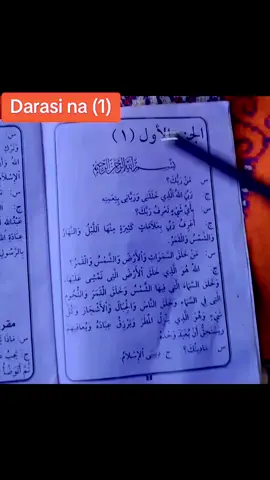 Darasi na (1)
الجزء الأول (١)
بسم الله الرحمن الرحيم
س : مَنْ رَبُّكَ؟
ج : رَبِّيَ اللهُ الَّذِي خَلَقَنِي وَرَبَّانِي بِنِعْمَتِهِ
س : بِأَيِّ شَيْءٍ تَعْرِفُ رَبَّكَ؟
ج : أَعْرِفُ رَبِّي بِعَلَامَاتٍ كَثِيرَةٍ مِنْهَا اللَّيْلُ وَالنَّهَارُ
وَالشَّمْسُ وَالْقَمَرُ.
س : مَنْ خَلَقَ السَّمَوَاتِ وَالْأَرْضَ وَالشَّمْسَ وَالْقَمَرَ؟
ج : اللهُ هُوَ الَّذِي خَلَقَ الْأَرْضَ الَّتِي نَمْشِي عَلَيْهَا،
وَخَلَقَ السَّمَاءَ الَّتِي فِيهَا الشَّمْسُ وَخَلَقَ الْقَمَرَ وَالنُّجُومَ
الَّتِي فِي السَّمَاءِ وَخَلَقَ النَّاسَ وَالْجِبَالَ وَالْأَشْجَارَ وَكُلَّ
شَيْءٍ وَهُوَ الَّذِي يُنْزِلُ الْمَطَرَ وَيَرْزُقُ عِبَادَهُ وَيُعَافِيهِمْ
وَيَسْتَحِقُّ أَنْ يُعْبَدَ وَحْدَهُ
س : مَا دِينُكَ؟ ج : دِينِيَ الْإِسْلَامُ